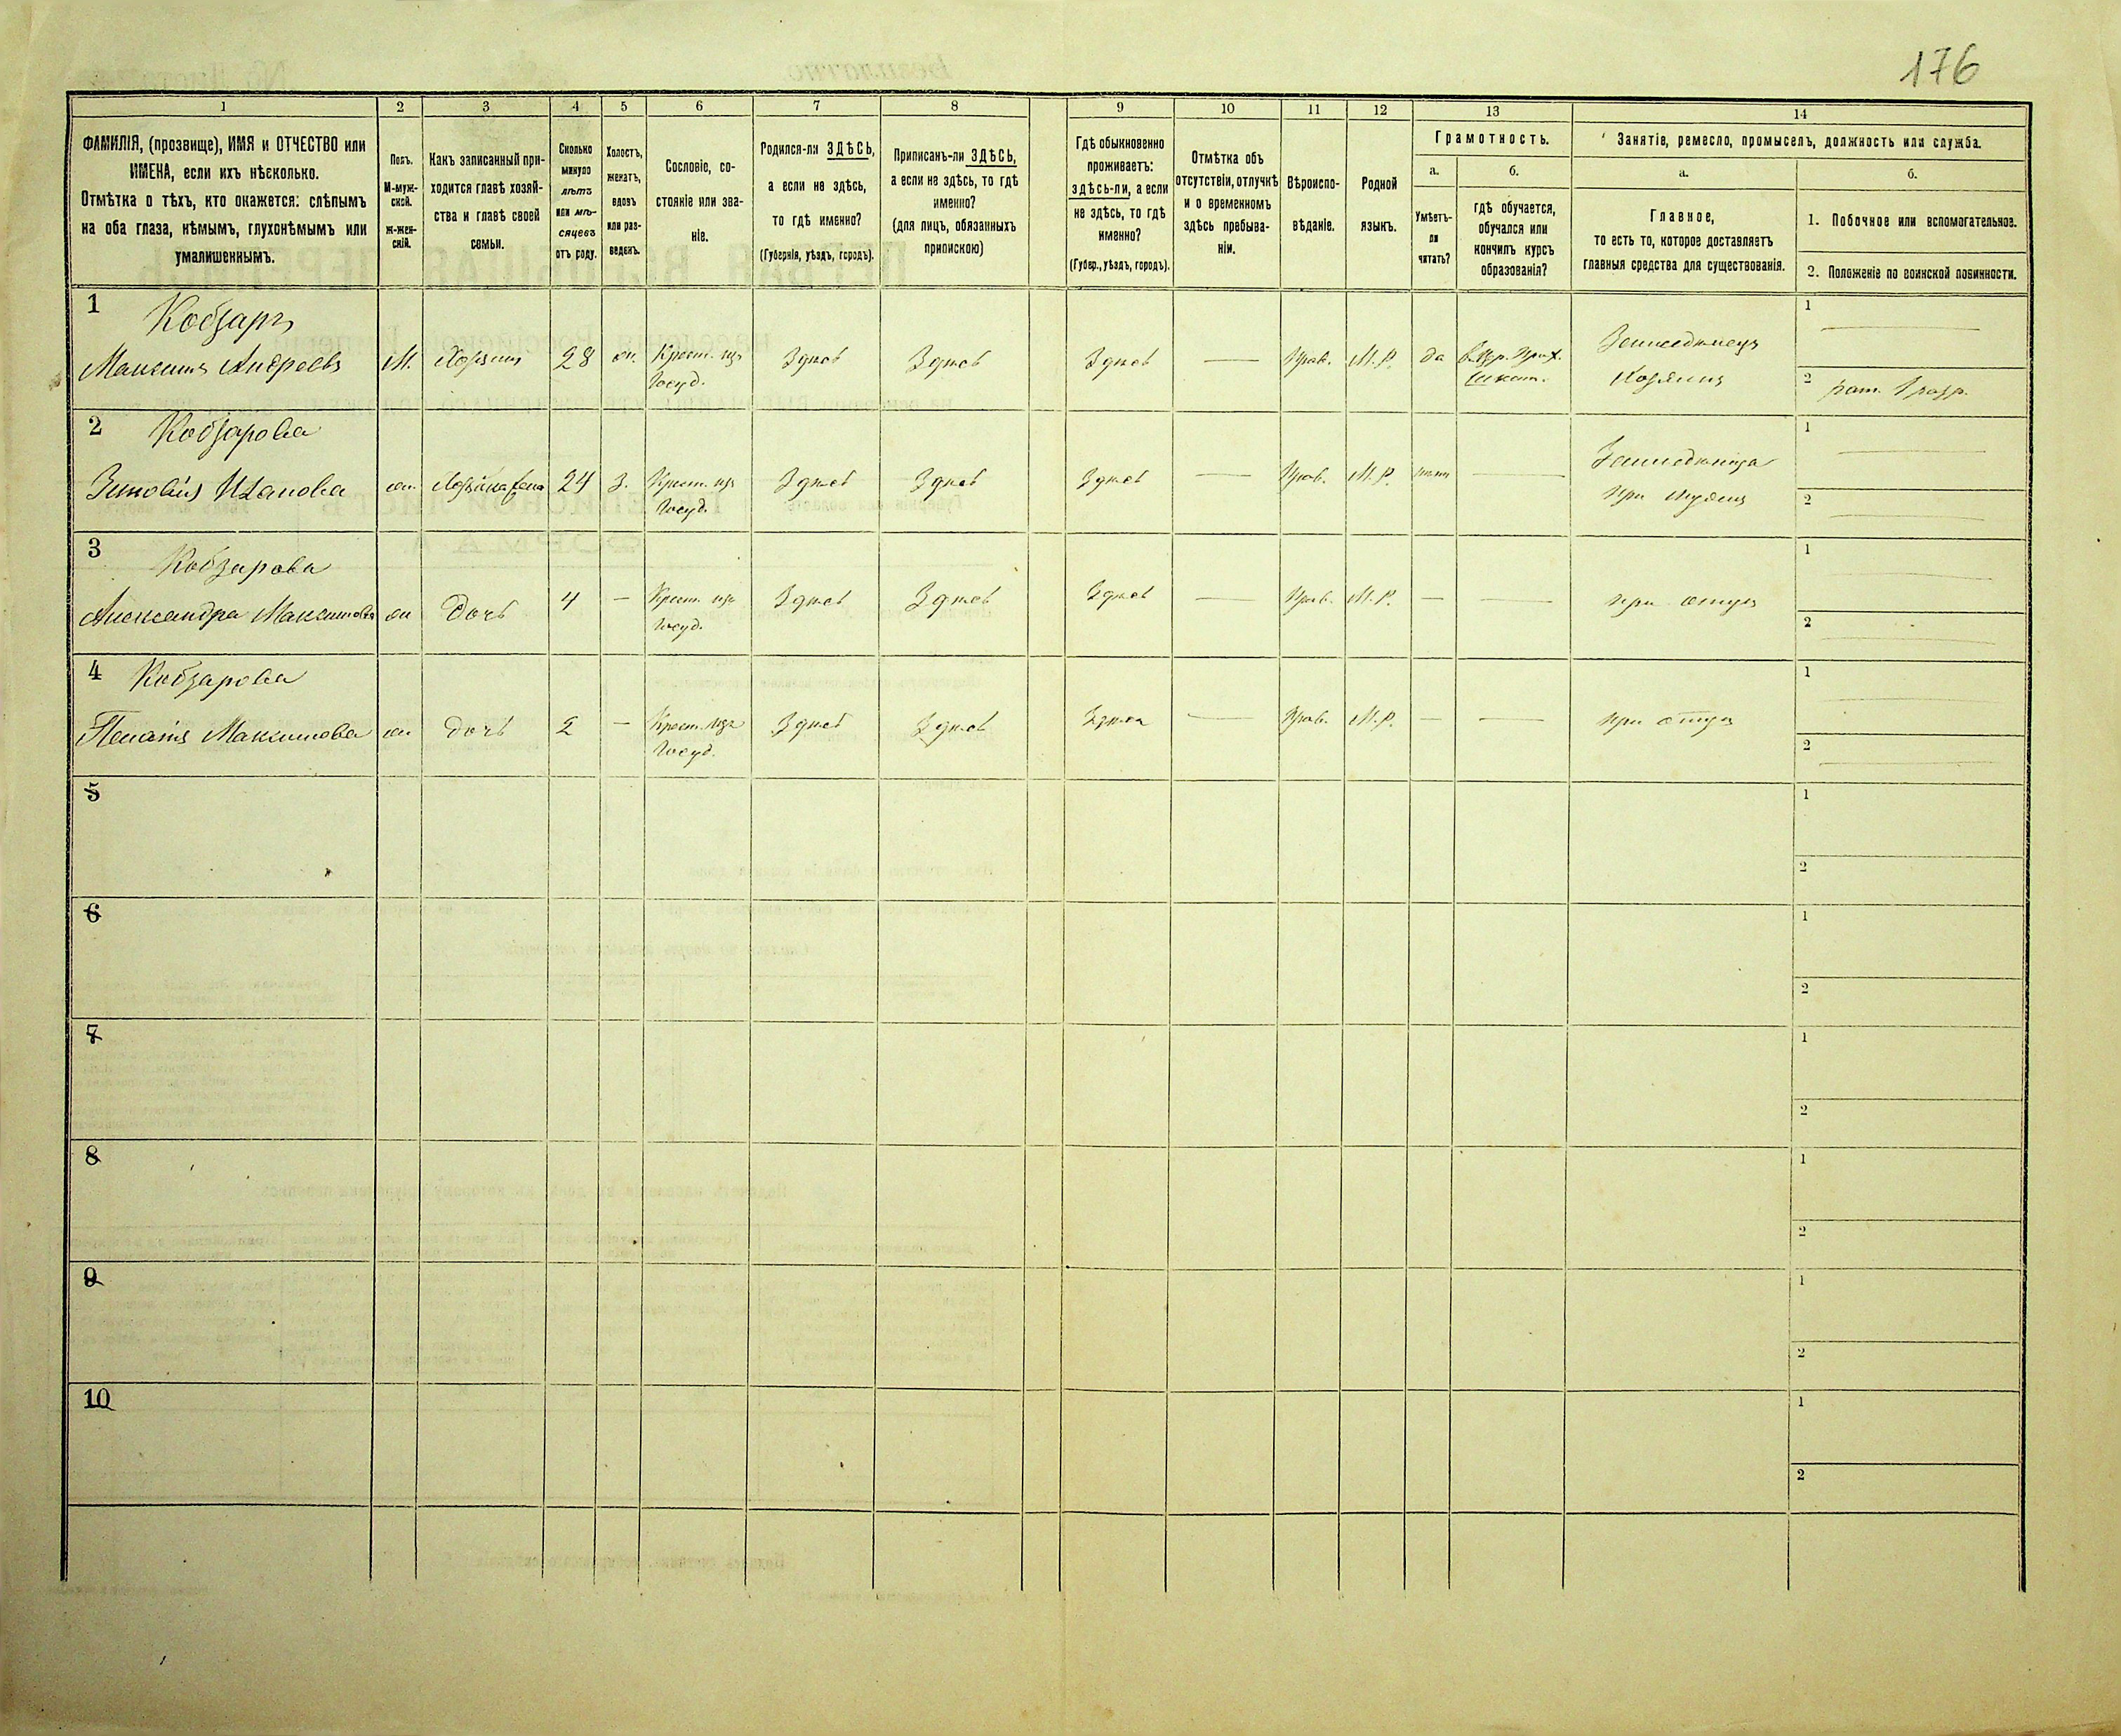 176
1 2 3 4 5 6 7 8 9 10 11 12 13 14
ФАМИЛІЯ, (прозвище), ИМЯ и ОТЧЕСТВО или
ИМЕНА, если ихъ нѣсколько.
Отмѣтка о тѣхъ, кто окажется: слѣпымъ
на оба глаза, нѣмымъ, глухонѣмымъ или
умалишеннымъ.
Полъ.
М-муж-
ской.
ж-жен-
скій.
Какъ записанный при-
ходится главѣ хозяй-
ства и главѣ своей
семьи.
Сколько
минуло
лѣтъ
или мѣ-
сяцевъ
отъ роду.
Холостъ,
женатъ,
вдовъ
или раз-
веденъ.
Сословіе, со-
стояніе или зва-
ніе.
Родился-ли ЗДѢСЬ,
а если не здѣсь,
то гдѣ именно?
(Губернія, уѣздъ, городъ).
Приписанъ-ли ЗДѢСЬ,
а если не здѣсь, то гдѣ
именно?
(для лицъ, обязанныхъ
припискою)
Гдѣ обыкновенно
проживаетъ:
здѣсь-ли, а если
не здѣсь, то гдѣ
именно?
(Губер., уѣздъ, городъ).
Отмѣтка объ
отсутствіи, отлучкѣ
и о временномъ
здѣсь пребыва-
ніи.
Вѣроиспо-
вѣданіе.
Родной
языкъ.
Грамотность.
а.
Умѣетъ-
ли
читать?
б.
гдѣ обучается,
обучался или
кончилъ курсъ
образованія?
Занятіе, ремесло, промыселъ, должность или служба.
а.
Главное,
то есть то, которое доставляетъ
главныя средства для существованія.
б.
1. Побочное или вспомогательное.
2. Положеніе по воинской повинности.
1 Кобзарь
Максимъ Андреевъ М. Хозяинъ 28 ж. Крест. изъ Здѣсь Здѣсь Здѣсь — Прав. М.Р. да
Госуд.
Земледѣлецъ
Хозяинъ
1 —
2 рат. 1 разр.
2 Кобзарова
Зиновія Иванова ж. Хозяина жена 24 З. Крест. изъ Здѣсь Здѣсь Здѣсь — Прав. М.Р. нѣтъ —
Госуд.
Земледѣлица
при мужѣ
1 —
2 —
3 Кобзарова
Александра Максимова ж дочь 4 — Крест. изъ Здѣсь Здѣсь Здѣсь — Прав. М.Р. — — при отцѣ
Госуд.
1 —
2 —
4 Кобзарова
Максимова ж дочь 2 — Крест. изъ Здѣсь Здѣсь Здѣсь — Прав. М.Р. — — при отцѣ
Госуд.
1 —
2 —
5
1
2
6
1
2
7
1
2
8
1
2
9
1
2
10
1
2